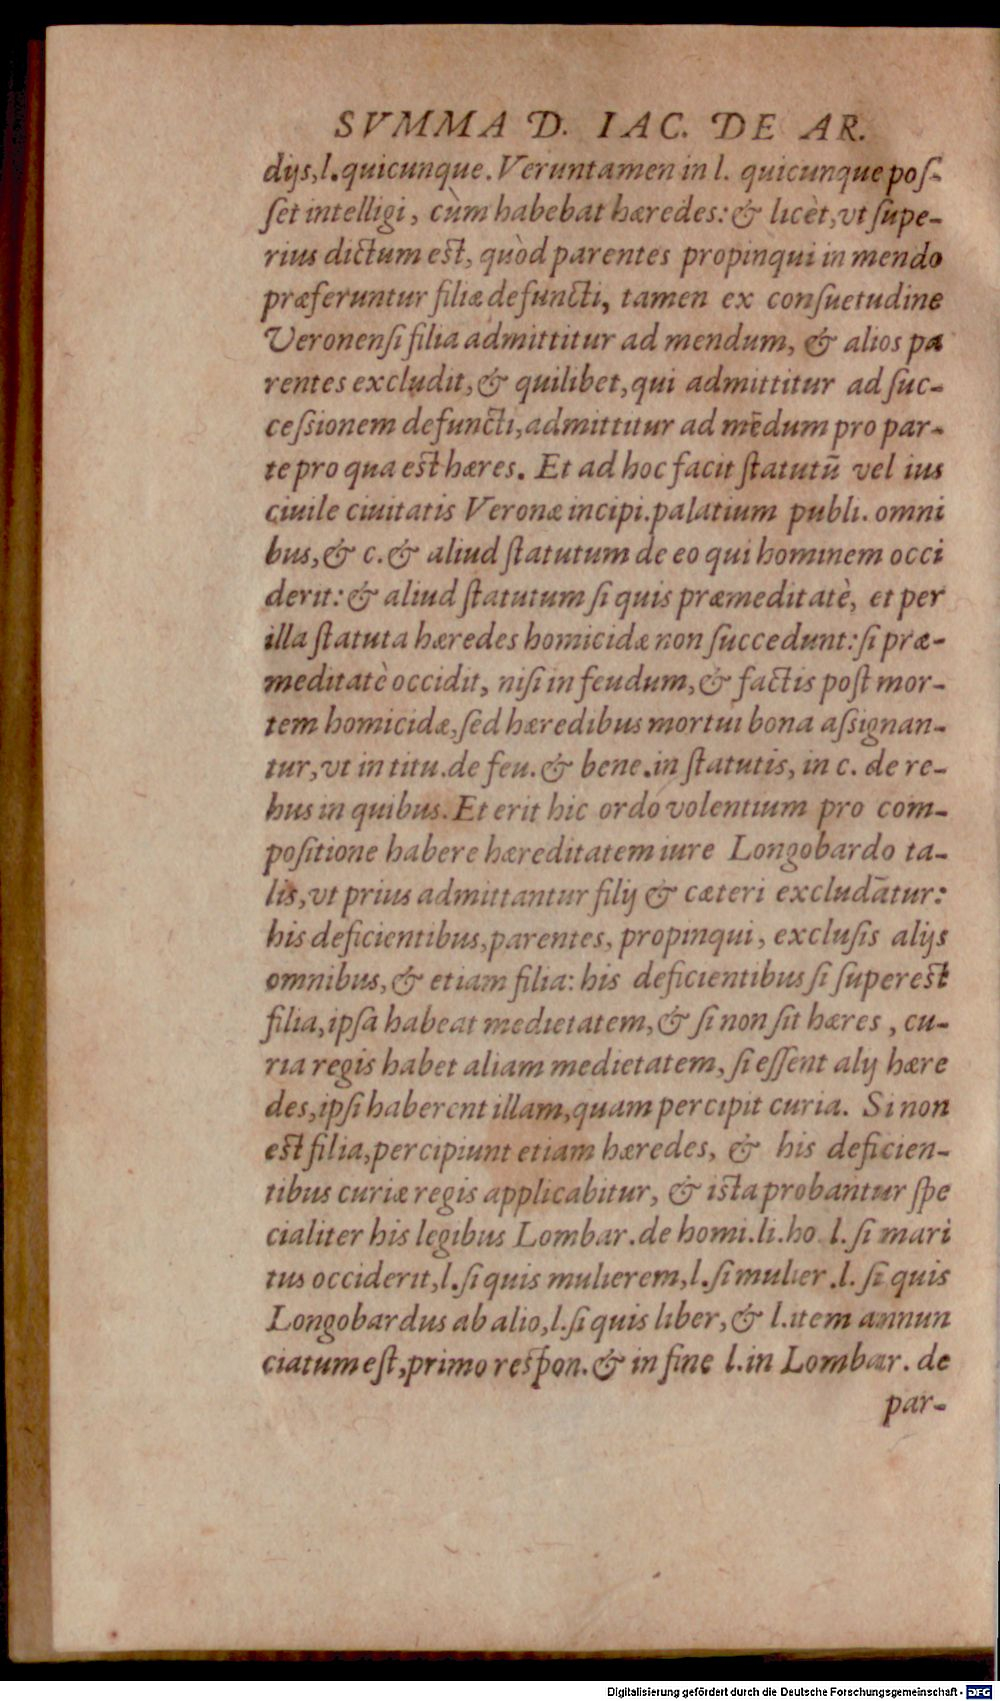 SVMMA D. IAC. DE AR.
dijs,l.quicunque.Veruntamen in l. quicunque poſ-
ſet intelligi, cùm habebat hæredes: & licèt,vt ſupe-
rius dictum est, quòd parentes propinqui in mendo
præferuntur filiæ defuncti, tamen ex conſuetudine
Veronenſi filia admittitur ad mendum, & alios pa
rentes excludit, & quilibet,qui admittitur ad ſuc-
ceſsionem defuncti,admittitur ad mēdum pro par-
te pro qua est hæres. Et ad hoc facit ſtatutū vel ius
ciuile ciuitatis Veronæ incipi.palatium publi. omni
bus,& c.& aliud ſtatutum de eo qui hominem occi
derit: & aliud ſtatutum ſi quis præmeditatè, et per
illa ſtatuta hæredes homicidæ non ſuccedunt: ſi præ-
meditatè occidit, niſi in feudum,& factis poſt mor-
tem homicidæ,ſed hæredibus mortui bona aſsignan-
tur,vt in titu.de feu. & bene.in ſtatutis, in c. de re-
bus in quibus.Et erit hic ordo volentium pro com-
poſitione habere hæreditatem iure Longobardo ta-
lis,vt prius admittantur filij & cæteri excludātur:
his deficientibus,parentes, propinqui, excluſis alijs
omnibus,& etiam filia: his deficientibus ſi superest
filia,ipſa habeat medietatem,& ſi non ſit hæres , cu-
ria regis habet aliam medietatem, ſi eſſent alij hære
des,ipſi haberent illam,quam percipit curia. Si non
est filia,percipiunt etiam hæredes, & his deficien-
tibus curiæ regis applicabitur, & ista probantur ſpe
cialiter his legibus Lombar.de homi.li.ho l. ſi mari
tus occiderit,l.ſi quis mulierem,l.ſi mulier .l. ſi quis
Longobardus ab alio,l.ſi quis liber,& l.item annun
ciatum eſt,primo reſpon.& in fine l.in Lombar. de
par-
Digitalisierung gefördert durch die Deutsche Forschungsgemeinschaft - DFG